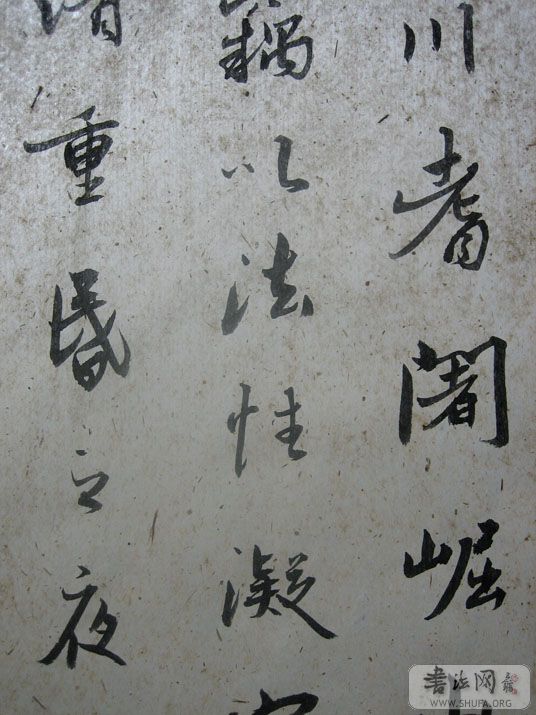 川耆闍崛
竊以法性凝
重昏之夜
書法网
WWW.SHUFA.ORG